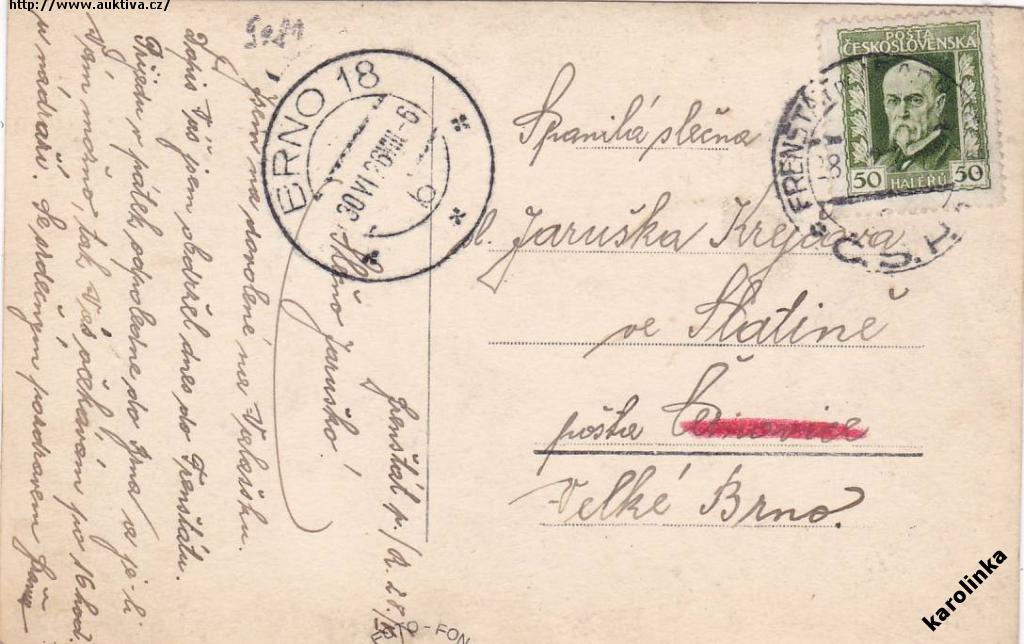 http://www.auktiva.cz/
POŠTA
ČESKOSLOVENSKÁ
50 HALÉŘŮ 50
FRENŠTÁ
Č.S.R.
BRNO 18
30 VI 28 VIII-6
6
Spanilá slečna
sl. Jaruška Krejčová
ve Slatině
pošta Černovice
Velké Brno.
Frenštát p./R. 28/
Slečno Jaruško!
Jsem na dovolené na Valašsku.
Dopis Váš jsem obdržel dnes do Frenštátu.
Přijedu v pátek odpoledne do Brna a je-li
Vám možno, tak Vás očekávám po 16 hod.
u nádraží. Se srdečným pozdravem
FOTO-FON
karolinka